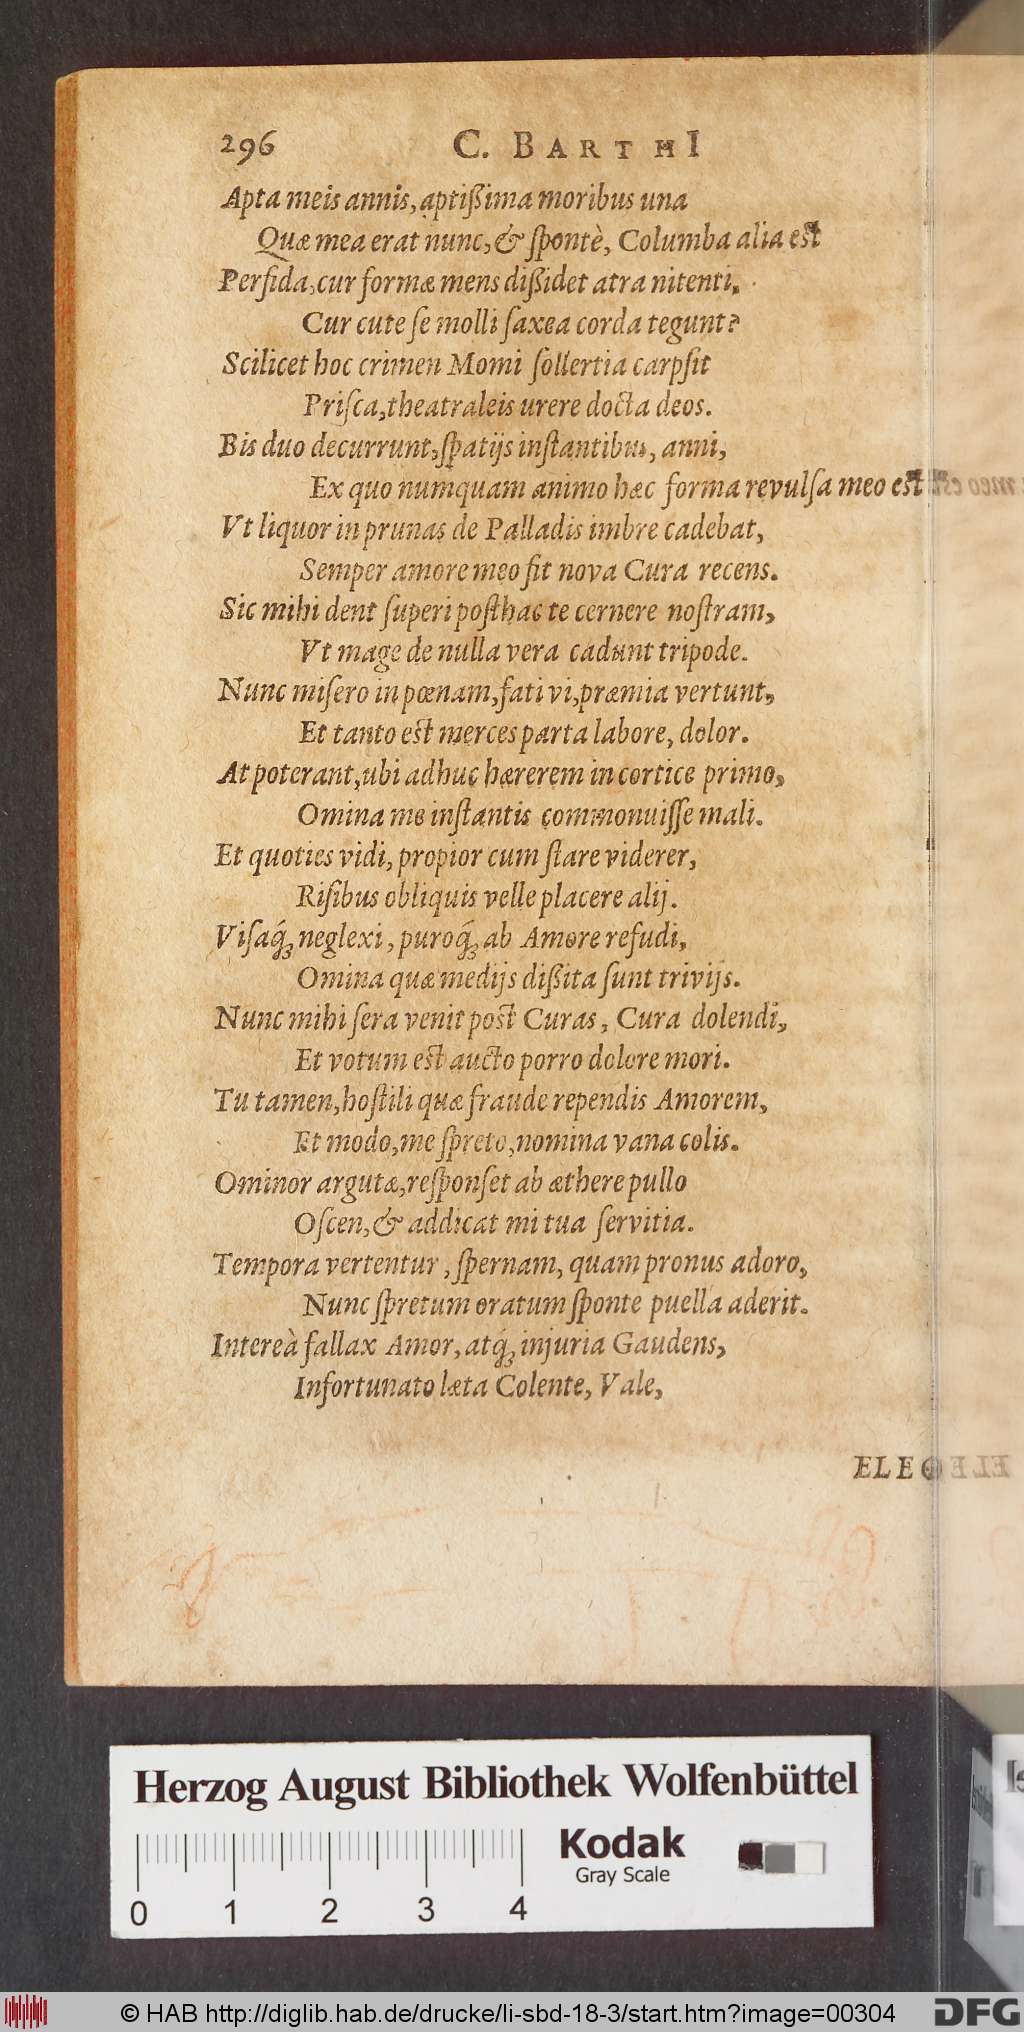 296 C. BARTHI
Apta meis annis, aptißima moribus una
Quæ mea erat nunc, & ſpontè, Columba alia est
Perfida, cur formæ mens dißidet atra nitenti,
Cur cute ſe molli ſaxea corda tegunt?
Scilicet hoc crimen Momi ſollertia carpſit
Priſca, theatraleis urere docta deos.
Bis duo decurrunt, ſpatijs inſtantibus, anni,
Ex quo numquam animo hæc forma revulſa meo est
Vt liquor in prunas de Palladis imbre cadebat,
Semper amore meo fit nova Cura recens.
Sic mihi dent ſuperi poſthac te cernere noſtram,
Vt mage de nulla vera cadunt tripode.
Nunc miſero in pœnam, fati vi, præmia vertunt,
Et tanto est merces parta labore, dolor.
At poterant, ubi adhuc hærerem in cortice primo,
Omina me inſtantis commonuiſſe mali.
Et quoties vidi, propior cum ſtare viderer,
Riſibus obliquis velle placere alij.
Viſaq́; neglexi, puroq́; ab Amore refudi,
Omina quæ medijs dißita ſunt trivijs.
Nunc mihi ſera venit post Curas, Cura dolendi,
Et votum est aucto porro dolore mori.
Tu tamen, hoſtili quæ fraude rependis Amorem,
Et modo, me ſpreto, nomina vana colis.
Ominor argutæ, reſponſet ab æthere pullo
Oſcen, & addicat mi tua ſervitia.
Tempora vertentur, ſpernam, quam pronus adoro,
Nunc ſpretum oratum ſponte puella aderit.
Intereà fallax Amor, atq́; injuria Gaudens,
Infortunato læta Colente, Vale,
ELEG
Herzog August Bibliothek Wolfenbüttel
Kodak
Gray Scale
0 1 2 3 4
© HAB http://diglib.hab.de/drucke/li-sbd-18-3/start.htm?image=00304
DFG